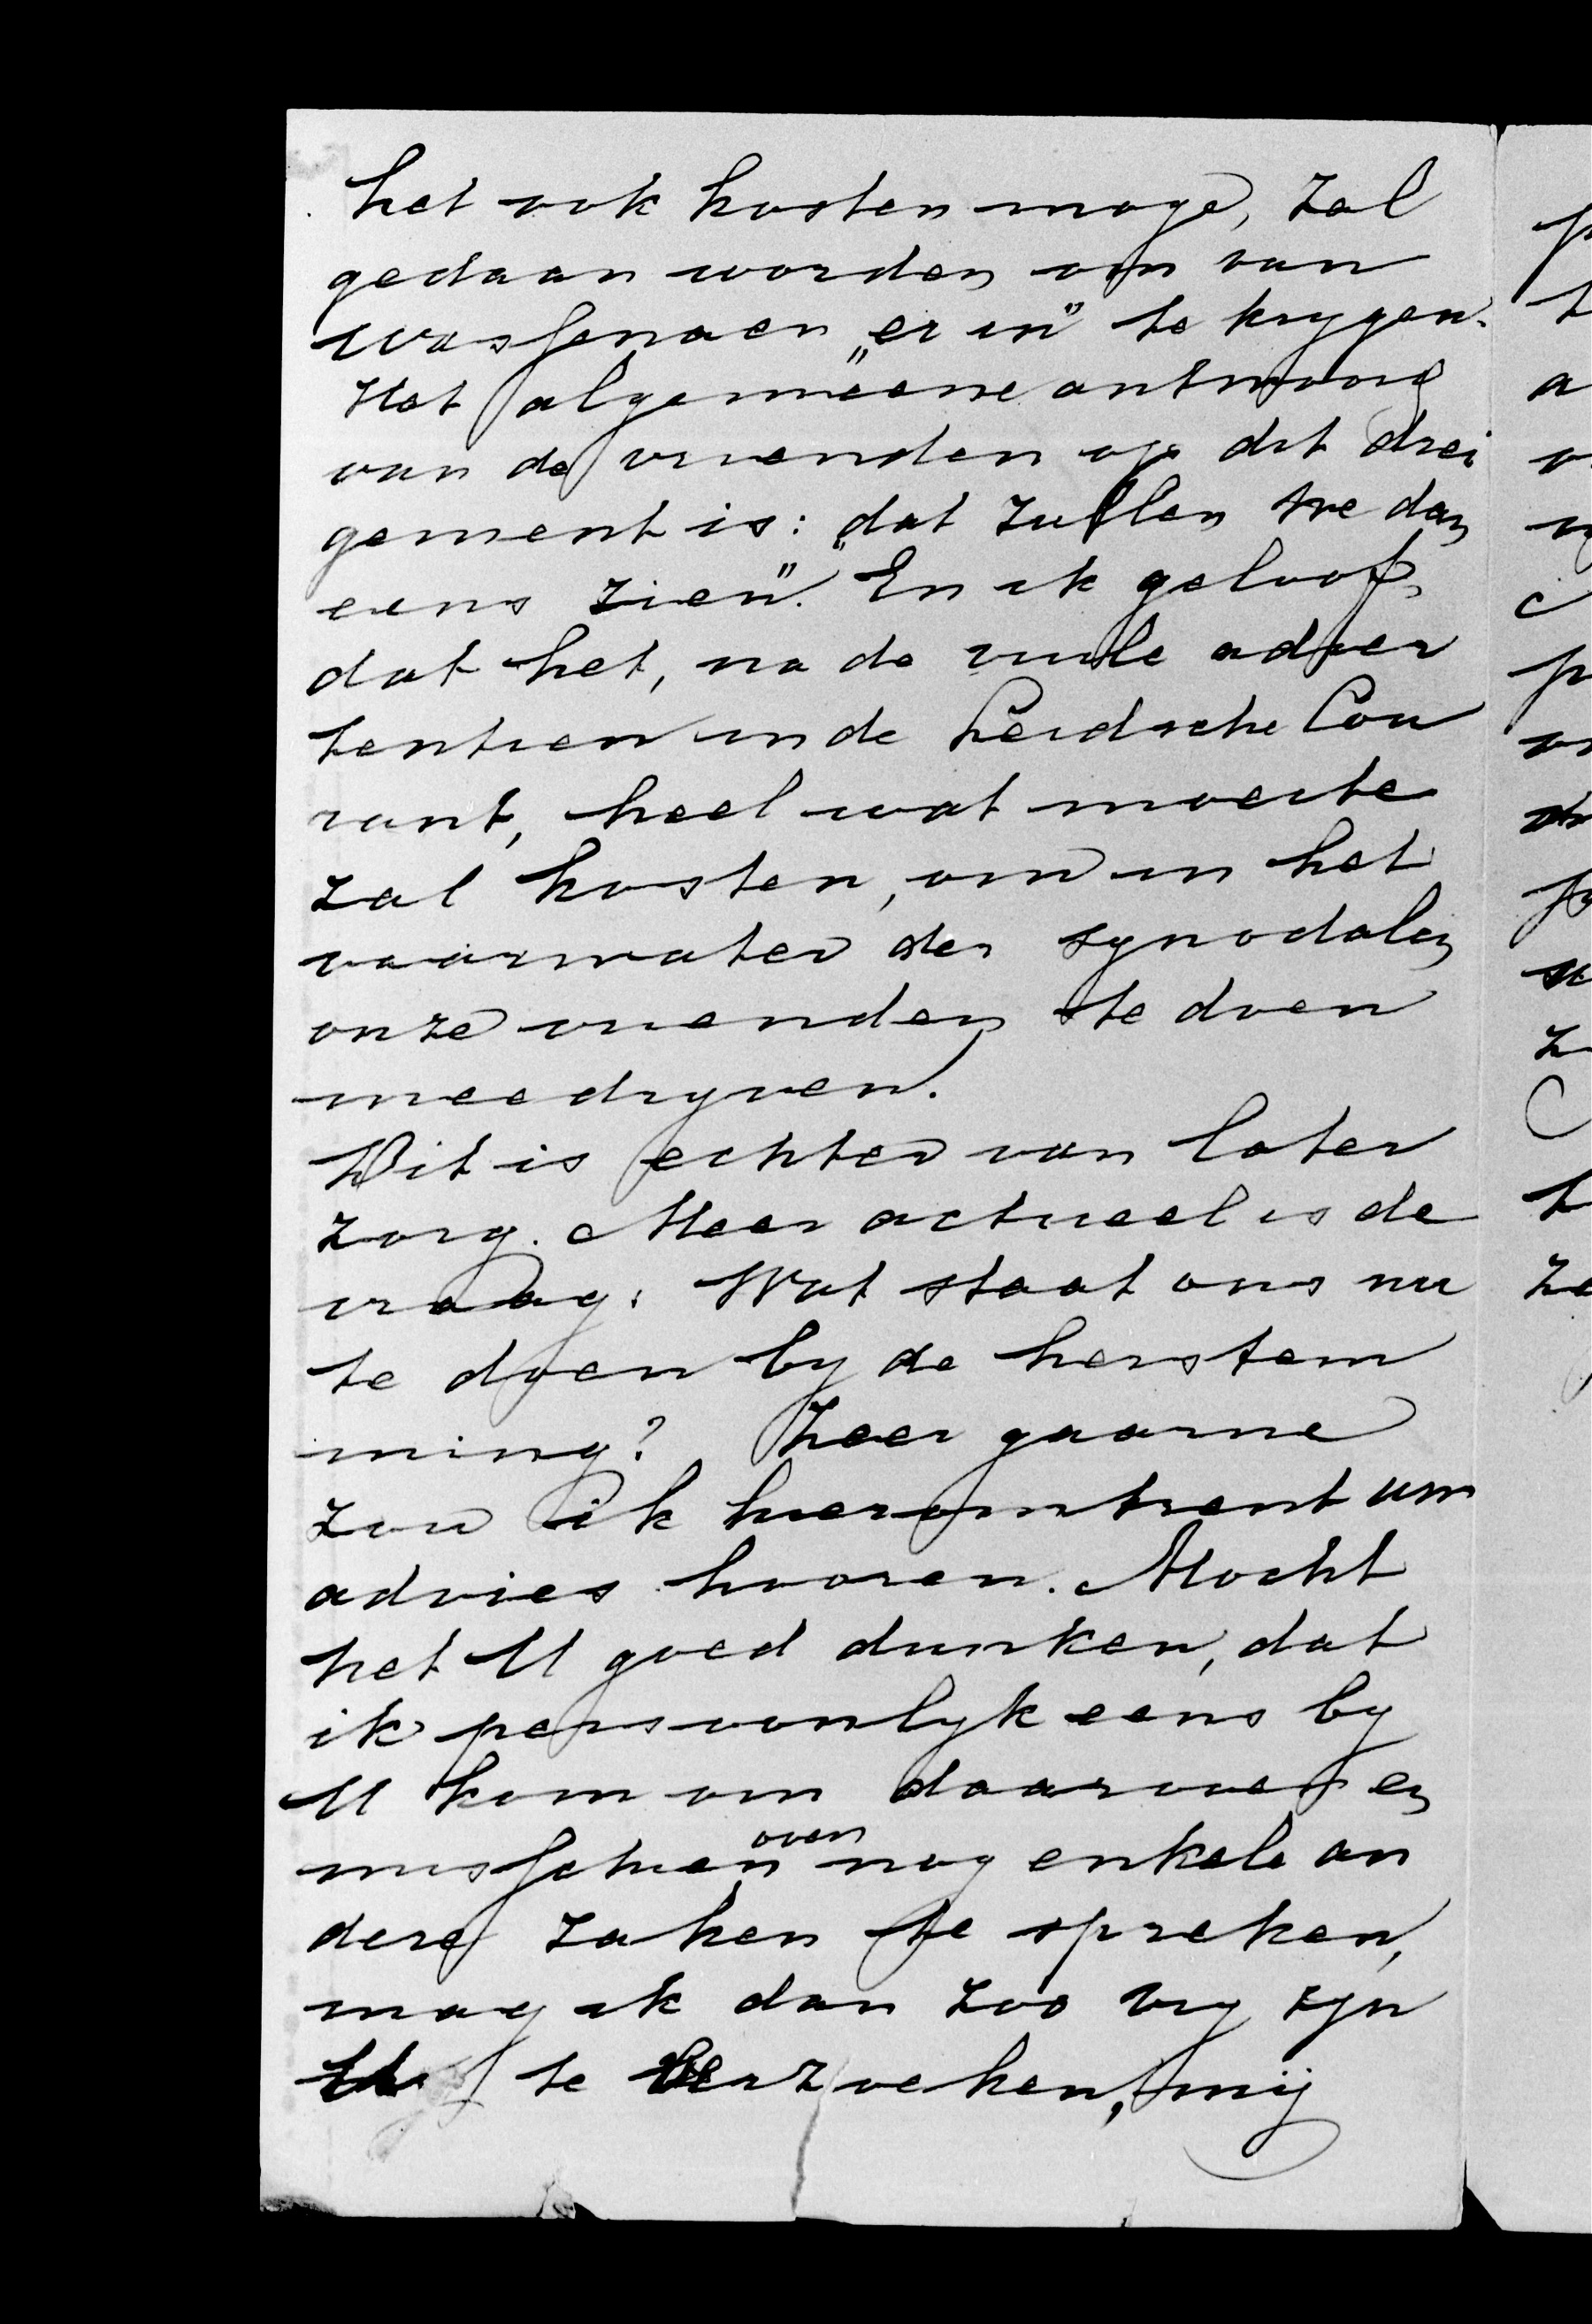 het ook kosten moge, zal
gedaan worden om van
Wassenaer „er in" te krygen.
Het algemeene antwoord
van de vrienden op dit drei
gement is: „dat zullen we dan
eens zien". En ik geloof,
dat het, na de vuile adver
tentien in de Leidsche Cou
rant, heel wat moeite
zal kosten, om in het
vaarwater der synodalen
onze vrienden te doen
meedryven.
Dit is echter van later
zorg. Meer actueel is de
vraag: Wat staat ons nu
te doen by de herstem
ming? Zeer gaarne
zou ik hieromtrent uw
advies hooren. Mocht
het U goed dunken, dat
ik persoonlyk eens by
U kom om daarover en
misschien over nog enkele an
dere zaken te spreken,
mag ik dan zoo vry zyn
U te verzoeken, mij